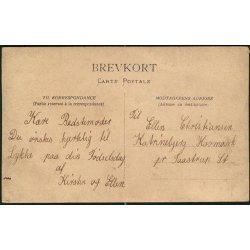 BREVKORT
CARTE POSTALE
TIL KORRESPONDANCE
(Partie réservée à la correspondance)
Kære Bedstemoder
Du ønskes hjertelig til
Lykke paa din Fødselsdag
af
Kirstin og Ellen
MODTAGERENS ADRESSE
(Adresse du destinataire)
Til
Ellen Christiansen
Katrinebjerg Havmark
pr Taastrup St.